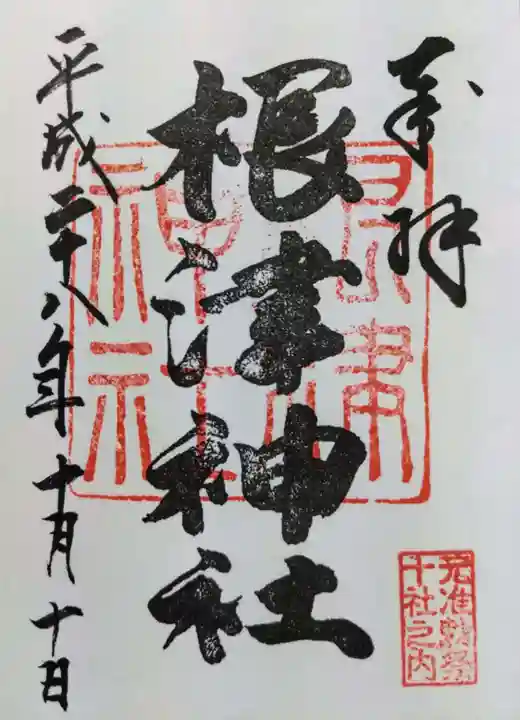 奉拝
根津神社
根津神社
元准勅祭
十社之内
平成二十八年十月十日